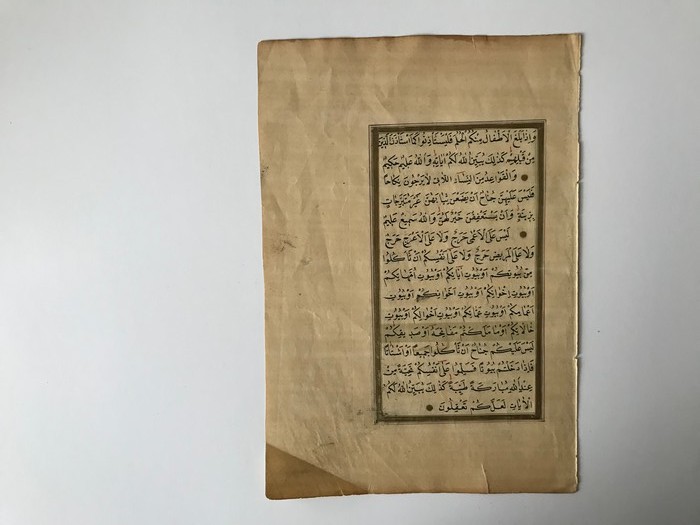 وَاِذَا بَلَغَ الْاَطْفَالُ مِنْكُمُ الْحُلُمَ فَلْيَسْتَاْذِنُوا كَمَا اسْتَاْذَنَ الَّذِينَ
مِنْ قَبْلِهِمْ كَذٰلِكَ يُبَيِّنُ اللّٰهُ لَكُمْ اٰيَاتِهِ وَاللّٰهُ عَلِيمٌ حَكِيمٌ
وَالْقَوَاعِدُ مِنَ النِّسَاءِ اللَّاتِي لَا يَرْجُونَ نِكَاحًا
فَلَيْسَ عَلَيْهِنَّ جُنَاحٌ اَنْ يَضَعْنَ ثِيَابَهُنَّ غَيْرَ مُتَبَرِّجَاتٍ
بِزِينَةٍ وَاَنْ يَسْتَعْفِفْنَ خَيْرٌ لَهُنَّ وَاللّٰهُ سَمِيعٌ عَلِيمٌ
لَيْسَ عَلَى الْاَعْمٰى حَرَجٌ وَلَا عَلَى الْاَعْرَجِ حَرَجٌ
وَلَا عَلَى الْمَرِيضِ حَرَجٌ وَلَا عَلٰى اَنْفُسِكُمْ اَنْ تَاْكُلُوا
مِنْ بُيُوتِكُمْ اَوْ بُيُوتِ اٰبَائِكُمْ اَوْ بُيُوتِ اُمَّهَاتِكُمْ
اَوْ بُيُوتِ اِخْوَانِكُمْ اَوْ بُيُوتِ اَخَوَاتِكُمْ اَوْ بُيُوتِ
اَعْمَامِكُمْ اَوْ بُيُوتِ عَمَّاتِكُمْ اَوْ بُيُوتِ اَخْوَالِكُمْ اَوْ بُيُوتِ
خَالَاتِكُمْ اَوْ مَا مَلَكْتُمْ مَفَاتِحَهُ اَوْ صَدِيقِكُمْ
لَيْسَ عَلَيْكُمْ جُنَاحٌ اَنْ تَاْكُلُوا جَمِيعًا اَوْ اَشْتَاتًا
فَاِذَا دَخَلْتُمْ بُيُوتًا فَسَلِّمُوا عَلٰى اَنْفُسِكُمْ تَحِيَّةً مِنْ
عِنْدِ اللّٰهِ مُبَارَكَةً طَيِّبَةً كَذٰلِكَ يُبَيِّنُ اللّٰهُ لَكُمُ
الْاٰيَاتِ لَعَلَّكُمْ تَعْقِلُونَ